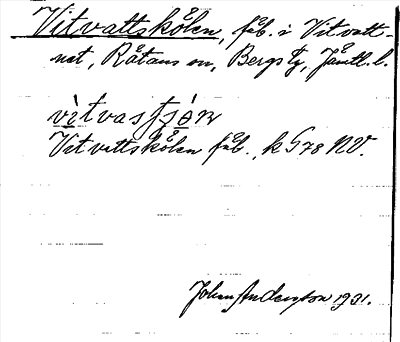 Vitvattskölen, fäb. i Vitvatt-
net, Rätans sn, Bergs tg, Jämtl. l.
vitvasʃɵ̀n
Vitvattskölen fäb., k G78 NV.
Johan Anderzon 1931.